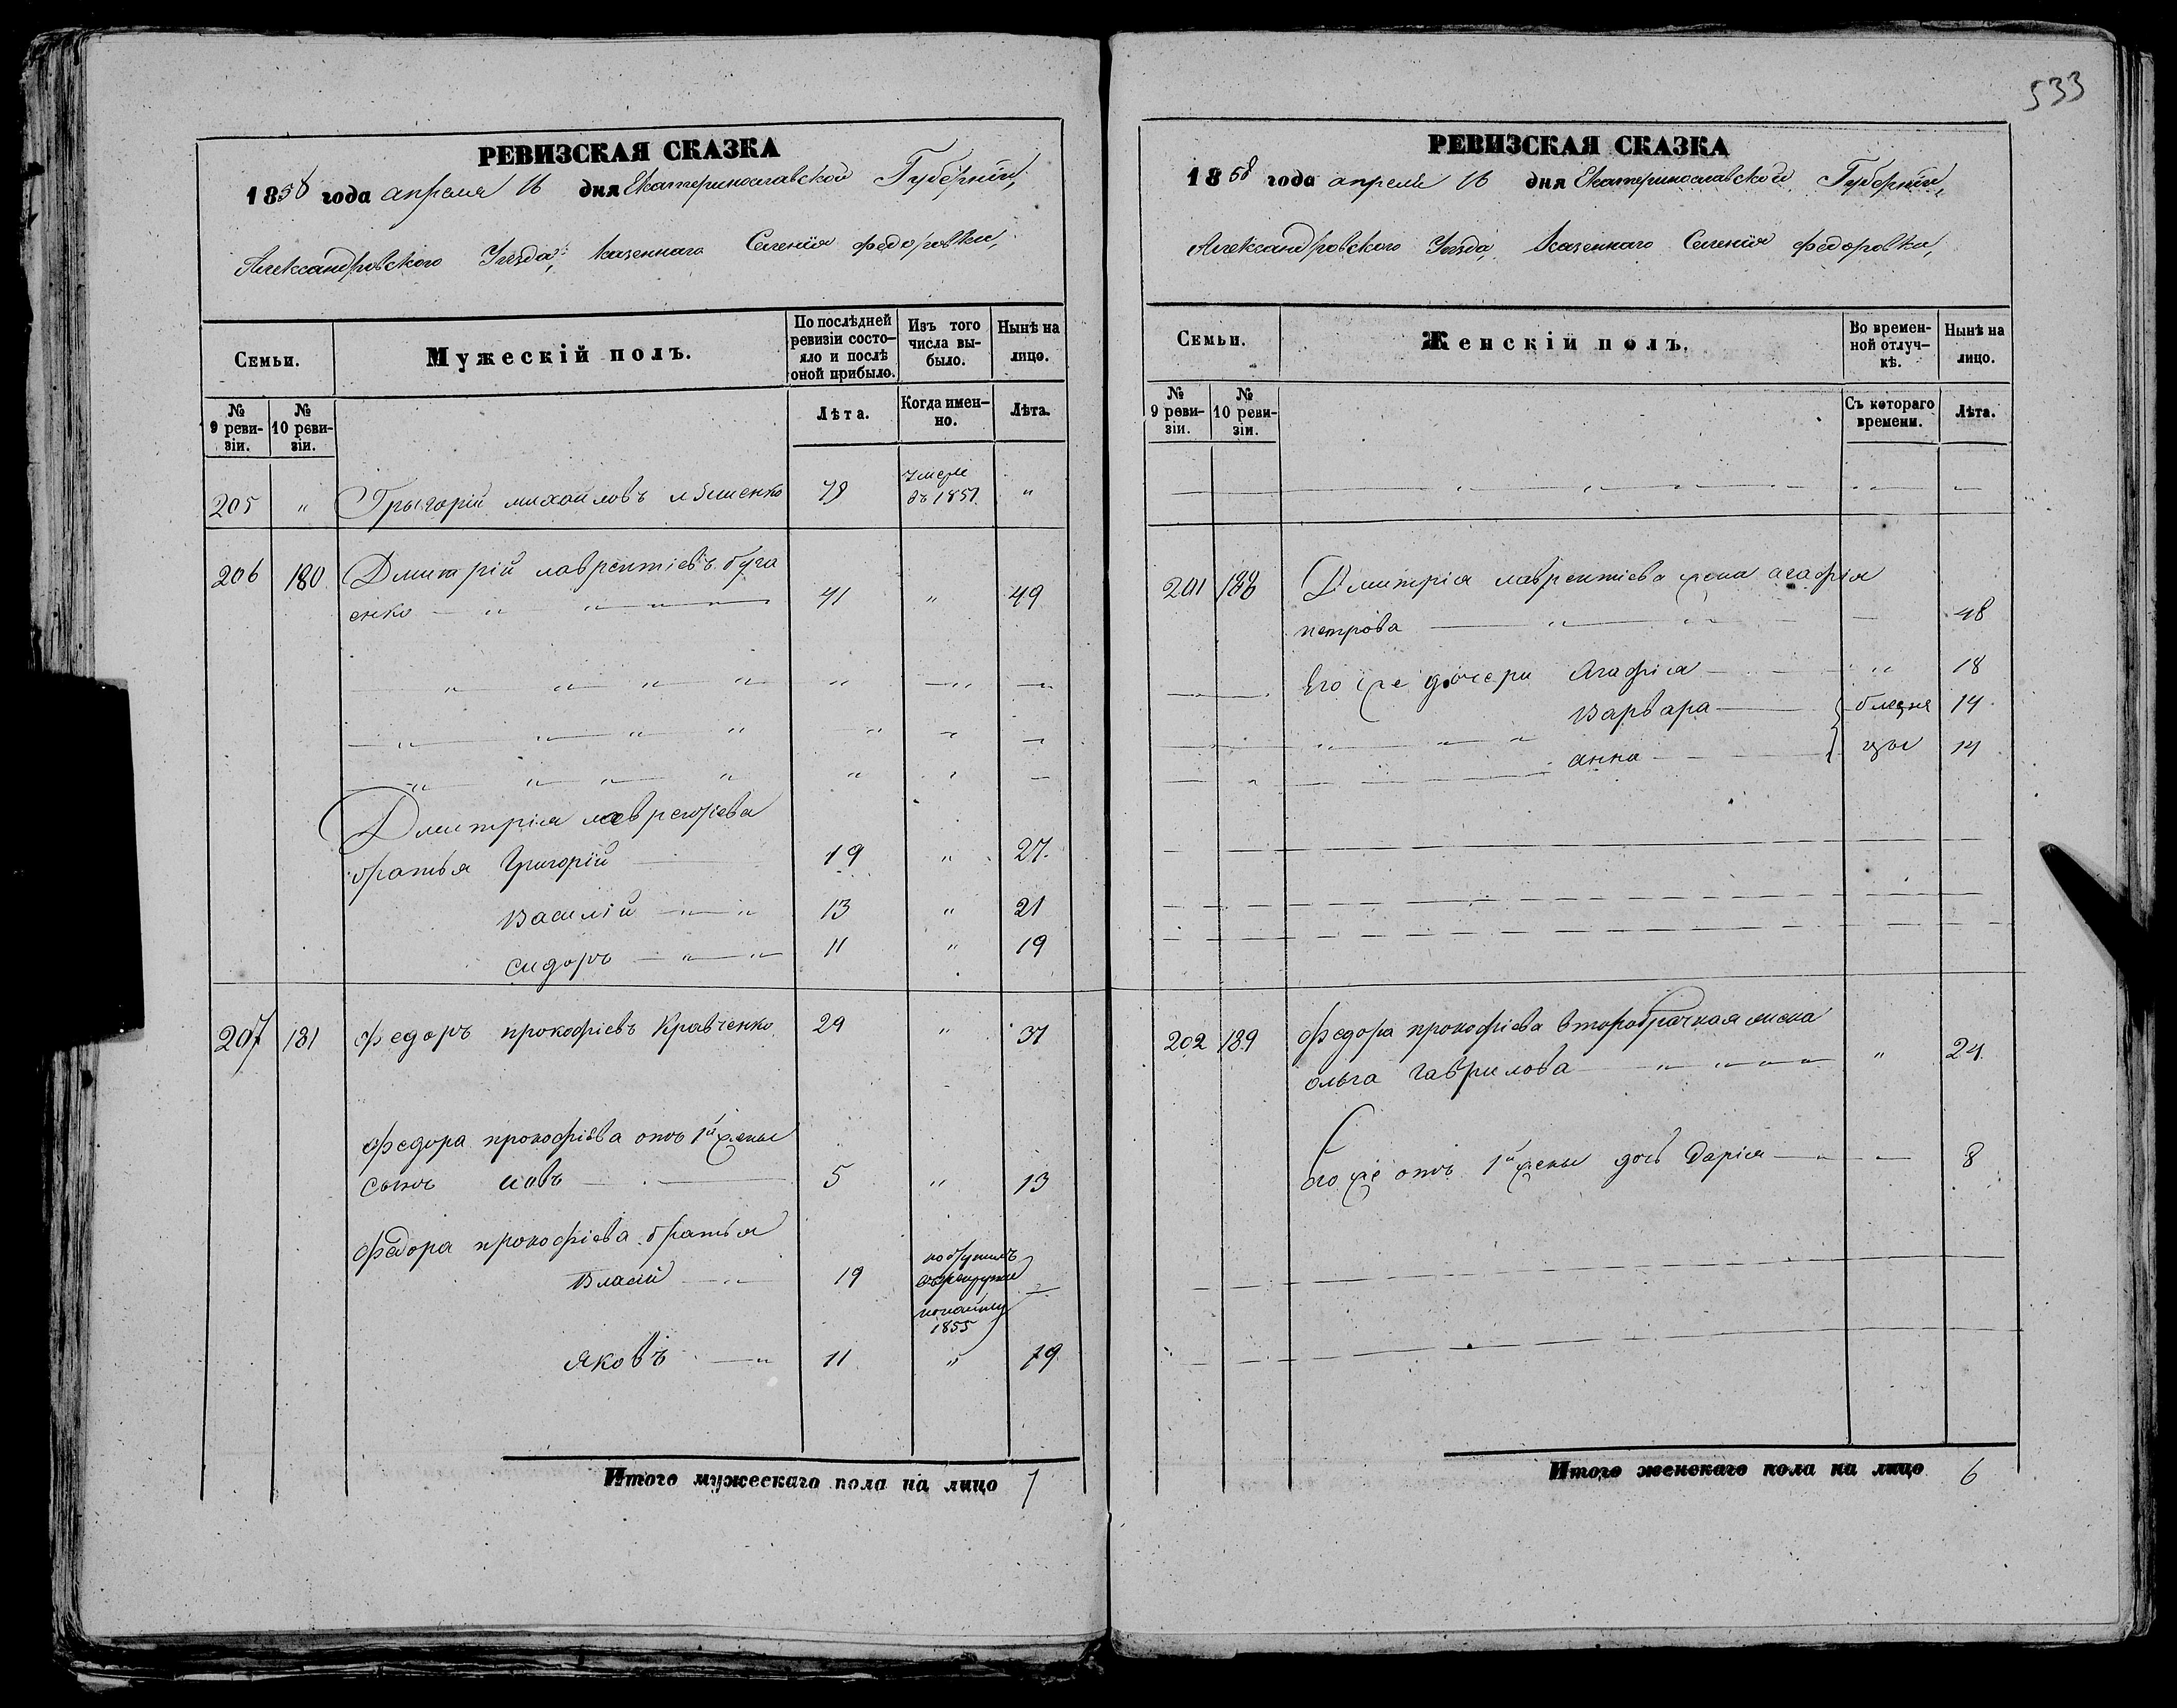 533
РЕВИЗСКАЯ СКАЗКА
1858 года апреля 16 дня Екатеринославской Губерніи,
Александровского Уезда, казеннаго Селенія Федоровки,
Семьи.
Мужескій полъ.
По послѣдней ревизіи состояло и послѣ оной прибыло.
Изъ того числа выбыло.
Нынѣ на лицо.
№ 9 ревизіи.
№ 10 ревизіи.
Лѣта.
Когда именно.
Лѣта.
205 " Грыгорій михайловъ 78 умере въ 1851 "
206 180 Дмитрій лаврентіевъ буга
енко 41 " 49
Дмитрія
братья Григорій 19 " 27.
Василій 13 " 21
сидоръ 11 " 19
207 181 федоръ прокофіевъ Кравченко 29 " 37
федора прокофіева отъ 1й жены
сынъ иовъ 5 " 13
федора прокофіева братья
Власій 19 1855
Яковъ 11 " 19
Итого мужескаго пола на лицо 7
РЕВИЗСКАЯ СКАЗКА
1858 года апреля 16 дня Екатеринославской Губерніи,
Александровского Уезда, казеннаго Селенія федоровки,
Семьи.
Женскій полъ.
Во временной отлучкѣ.
Нынѣ на лицо.
№ 9 ревизіи.
№ 10 ревизіи.
Съ котораго времени.
Лѣта.
201 188 Дмитрія лаврентіева жена агафія
петрова 48
Его же дочери Агафія " 18
Варвара близне 14
анна цы 14
202 189 федора прокофіева второбрачная жена
ольга гаврилова " 24
Его же отъ 1й жены дочь Дарія 8
Итого женскаго пола на лицо 6